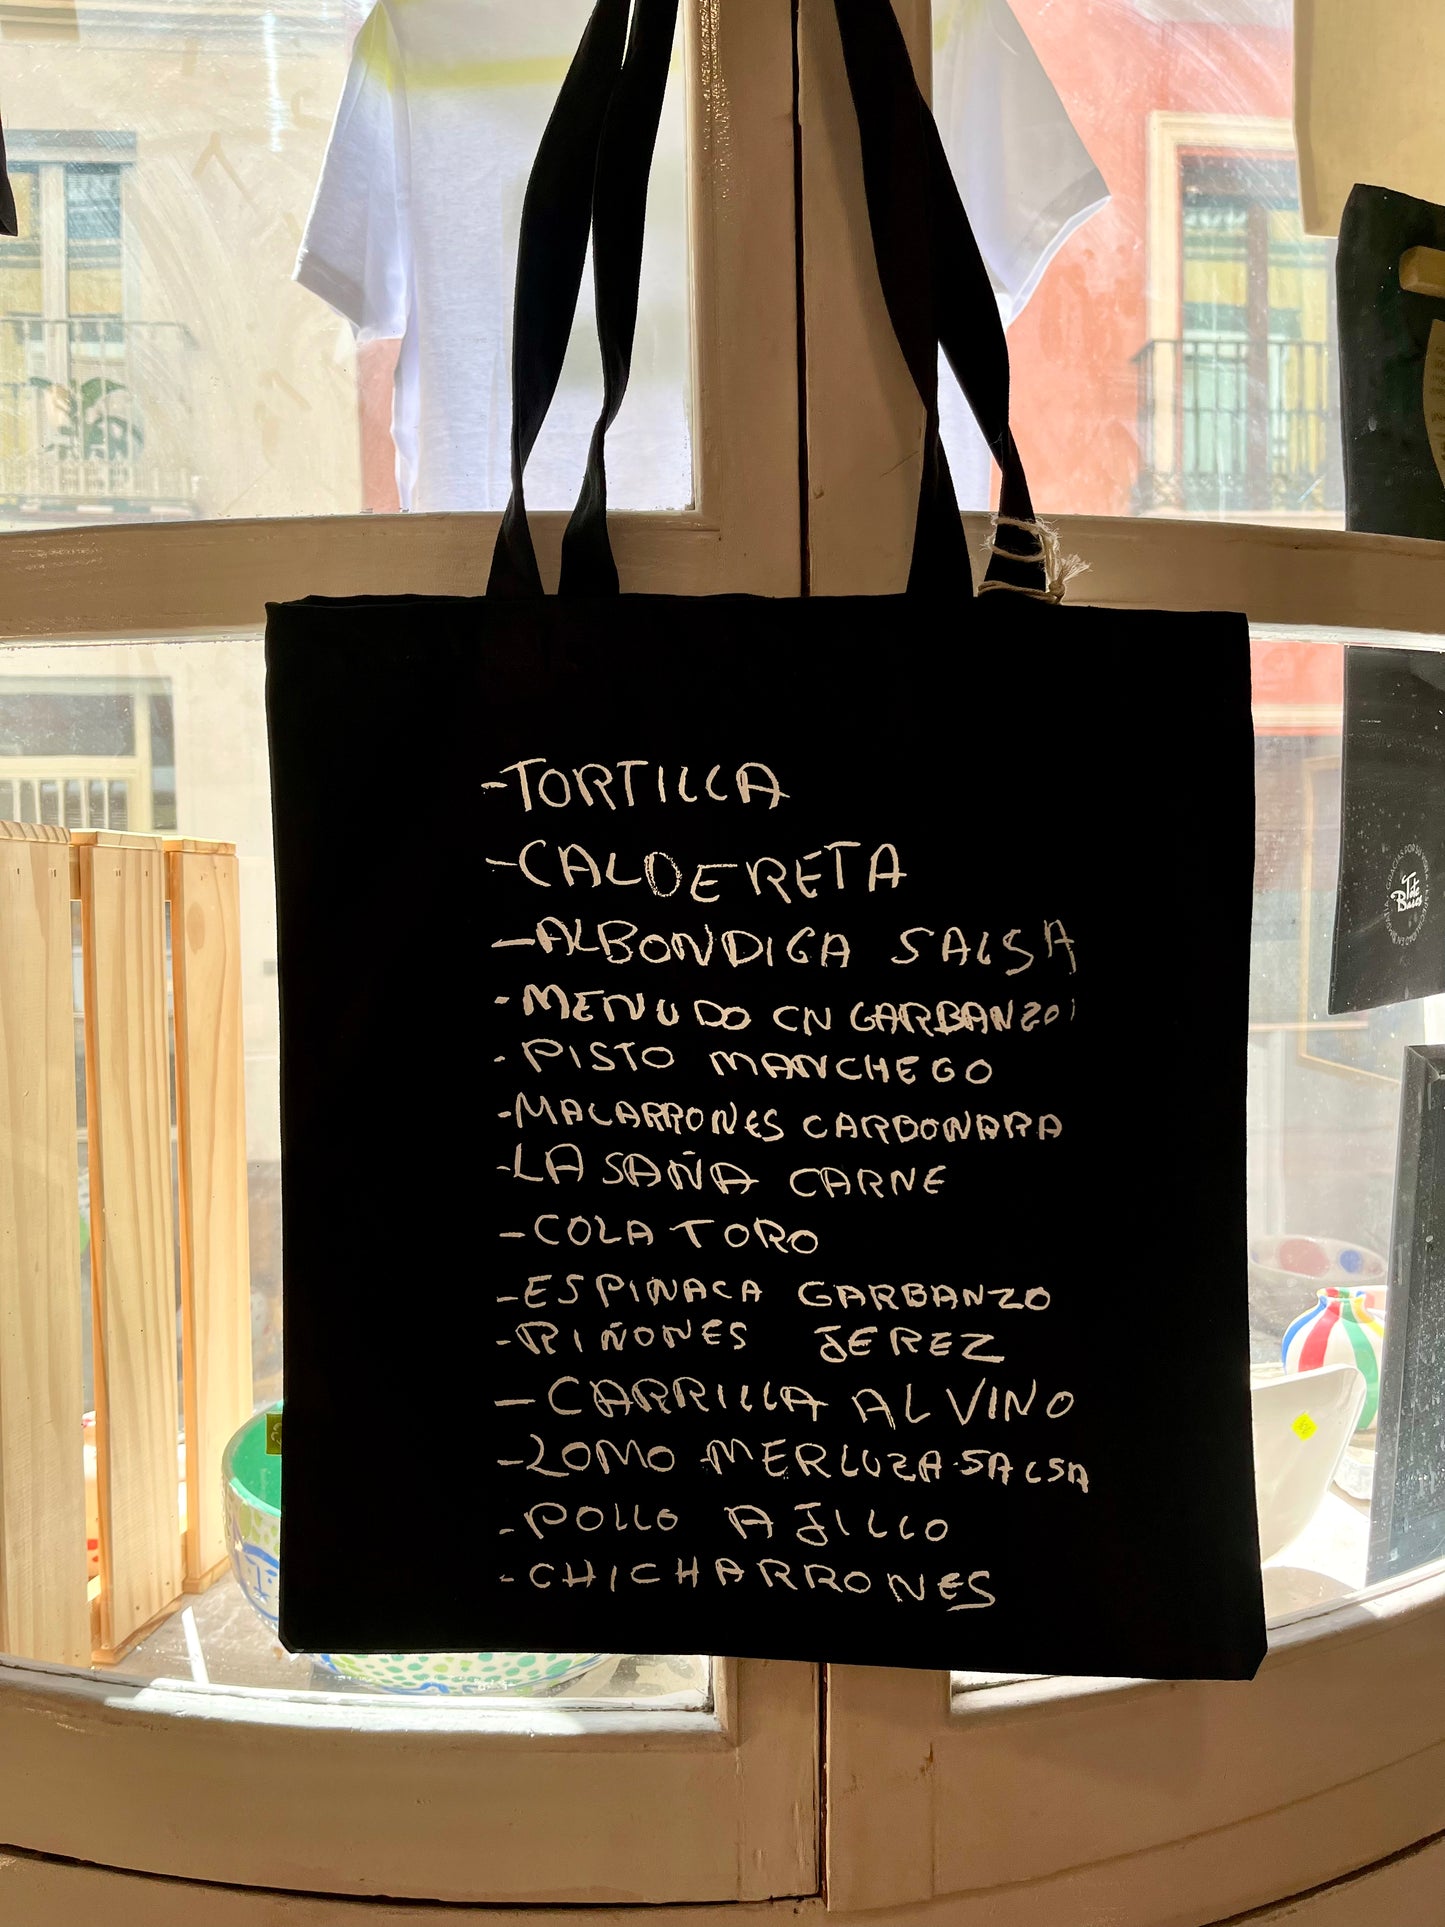 -TORTILLA
-CALDERETA
-ALBONDIGA SALSA
-MENUDO CN GARBANZO
-PISTO MANCHEGO
-MACARRONES CARBONARA
-LA SAÑA CARNE
-COLA TORO
-ESPINACA GARBANZO
-RIÑONES JEREZ
-CARRILLA AL VINO
-LOMO MERLUZA-SALSA
-POLLO AJILLO
-CHICHARRONES
Tote
Bags